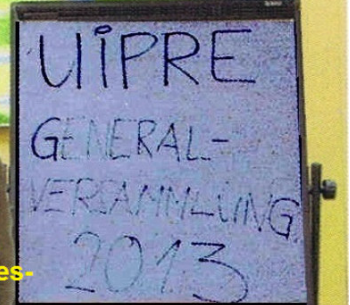 UiPRE
GENERAL-
VERSAMMLUNG
2013
es-